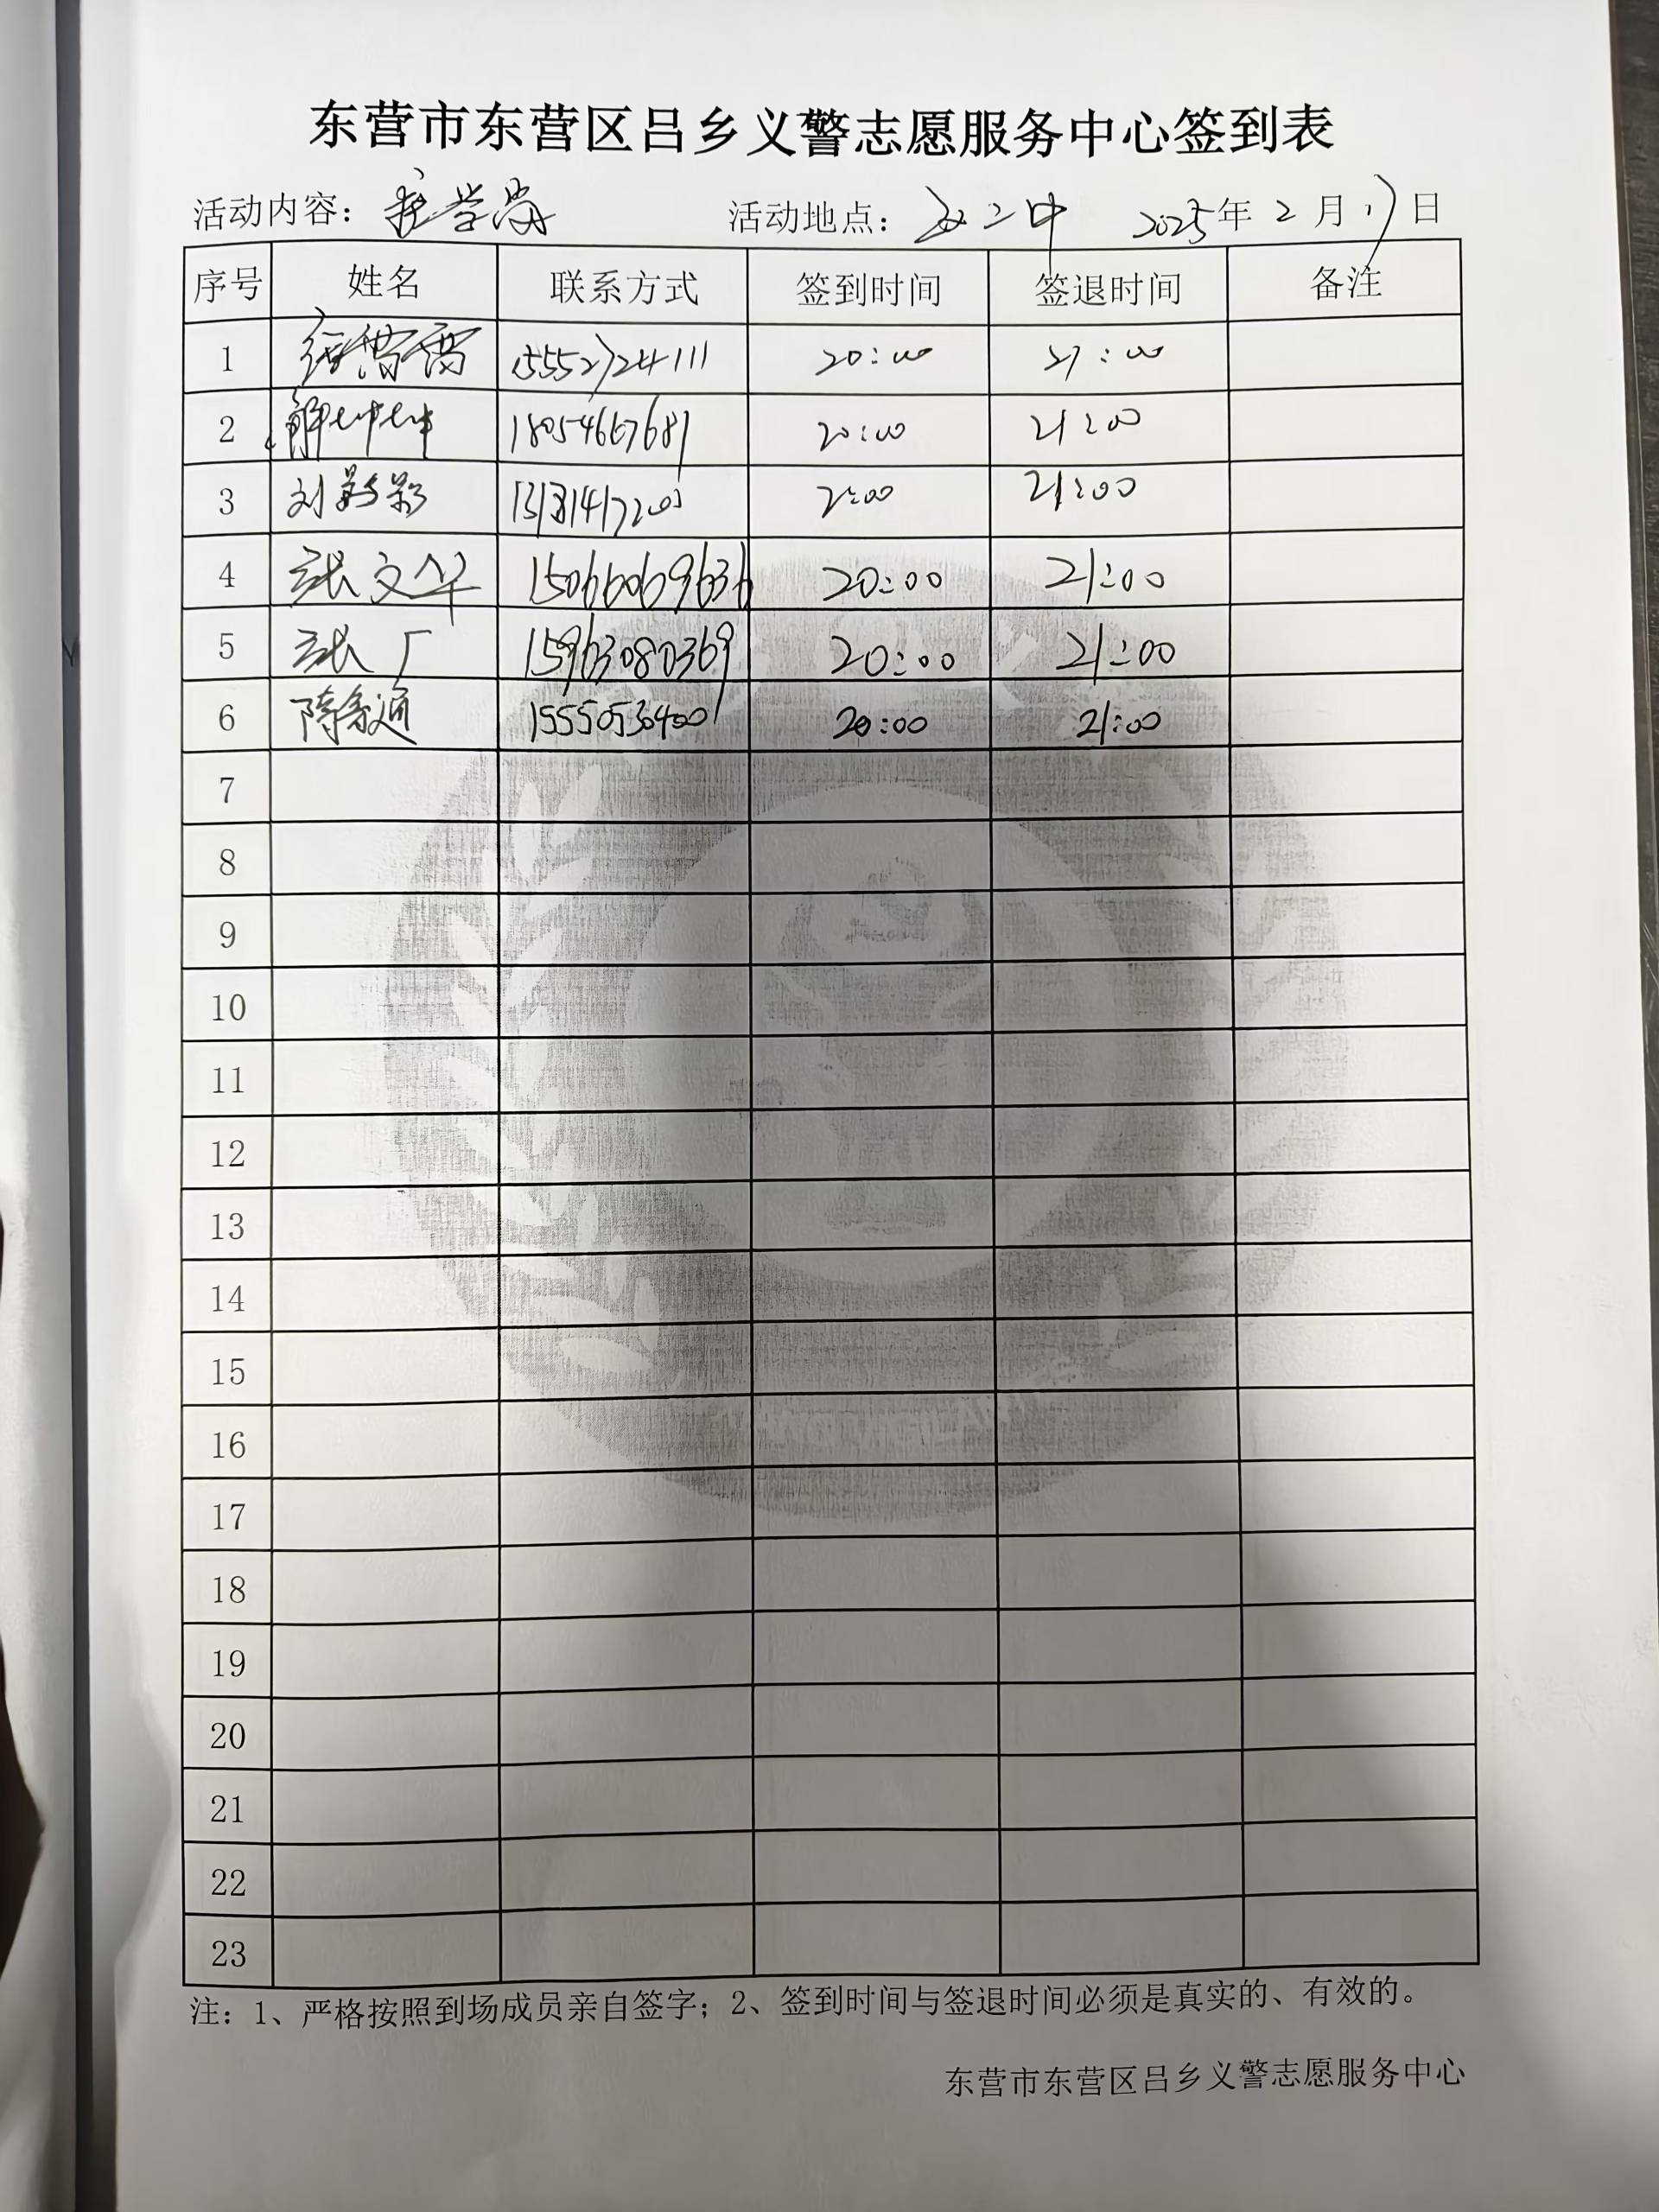 东营市东营区吕乡义警志愿服务中心签到表
活动内容：护学岗 活动地点： 二中 2025年2月17日
序号 姓名 联系方式 签到时间 签退时间 备注
1 15552724111 20:00 21:00
2 解坤坤 18054667681 20:00 21:00
3 刘 影 21:00
4 张文华 15066069636 20:00 21:00
5 张广 15963080369 20:00 21:00
6 隋 通 15550534001 20:00 21:00
7
8
9
10
11
12
13
14
15
16
17
18
19
20
21
22
23
注：1、严格按照到场成员亲自签字；2、签到时间与签退时间必须是真实的、有效的。
东营市东营区吕乡义警志愿服务中心